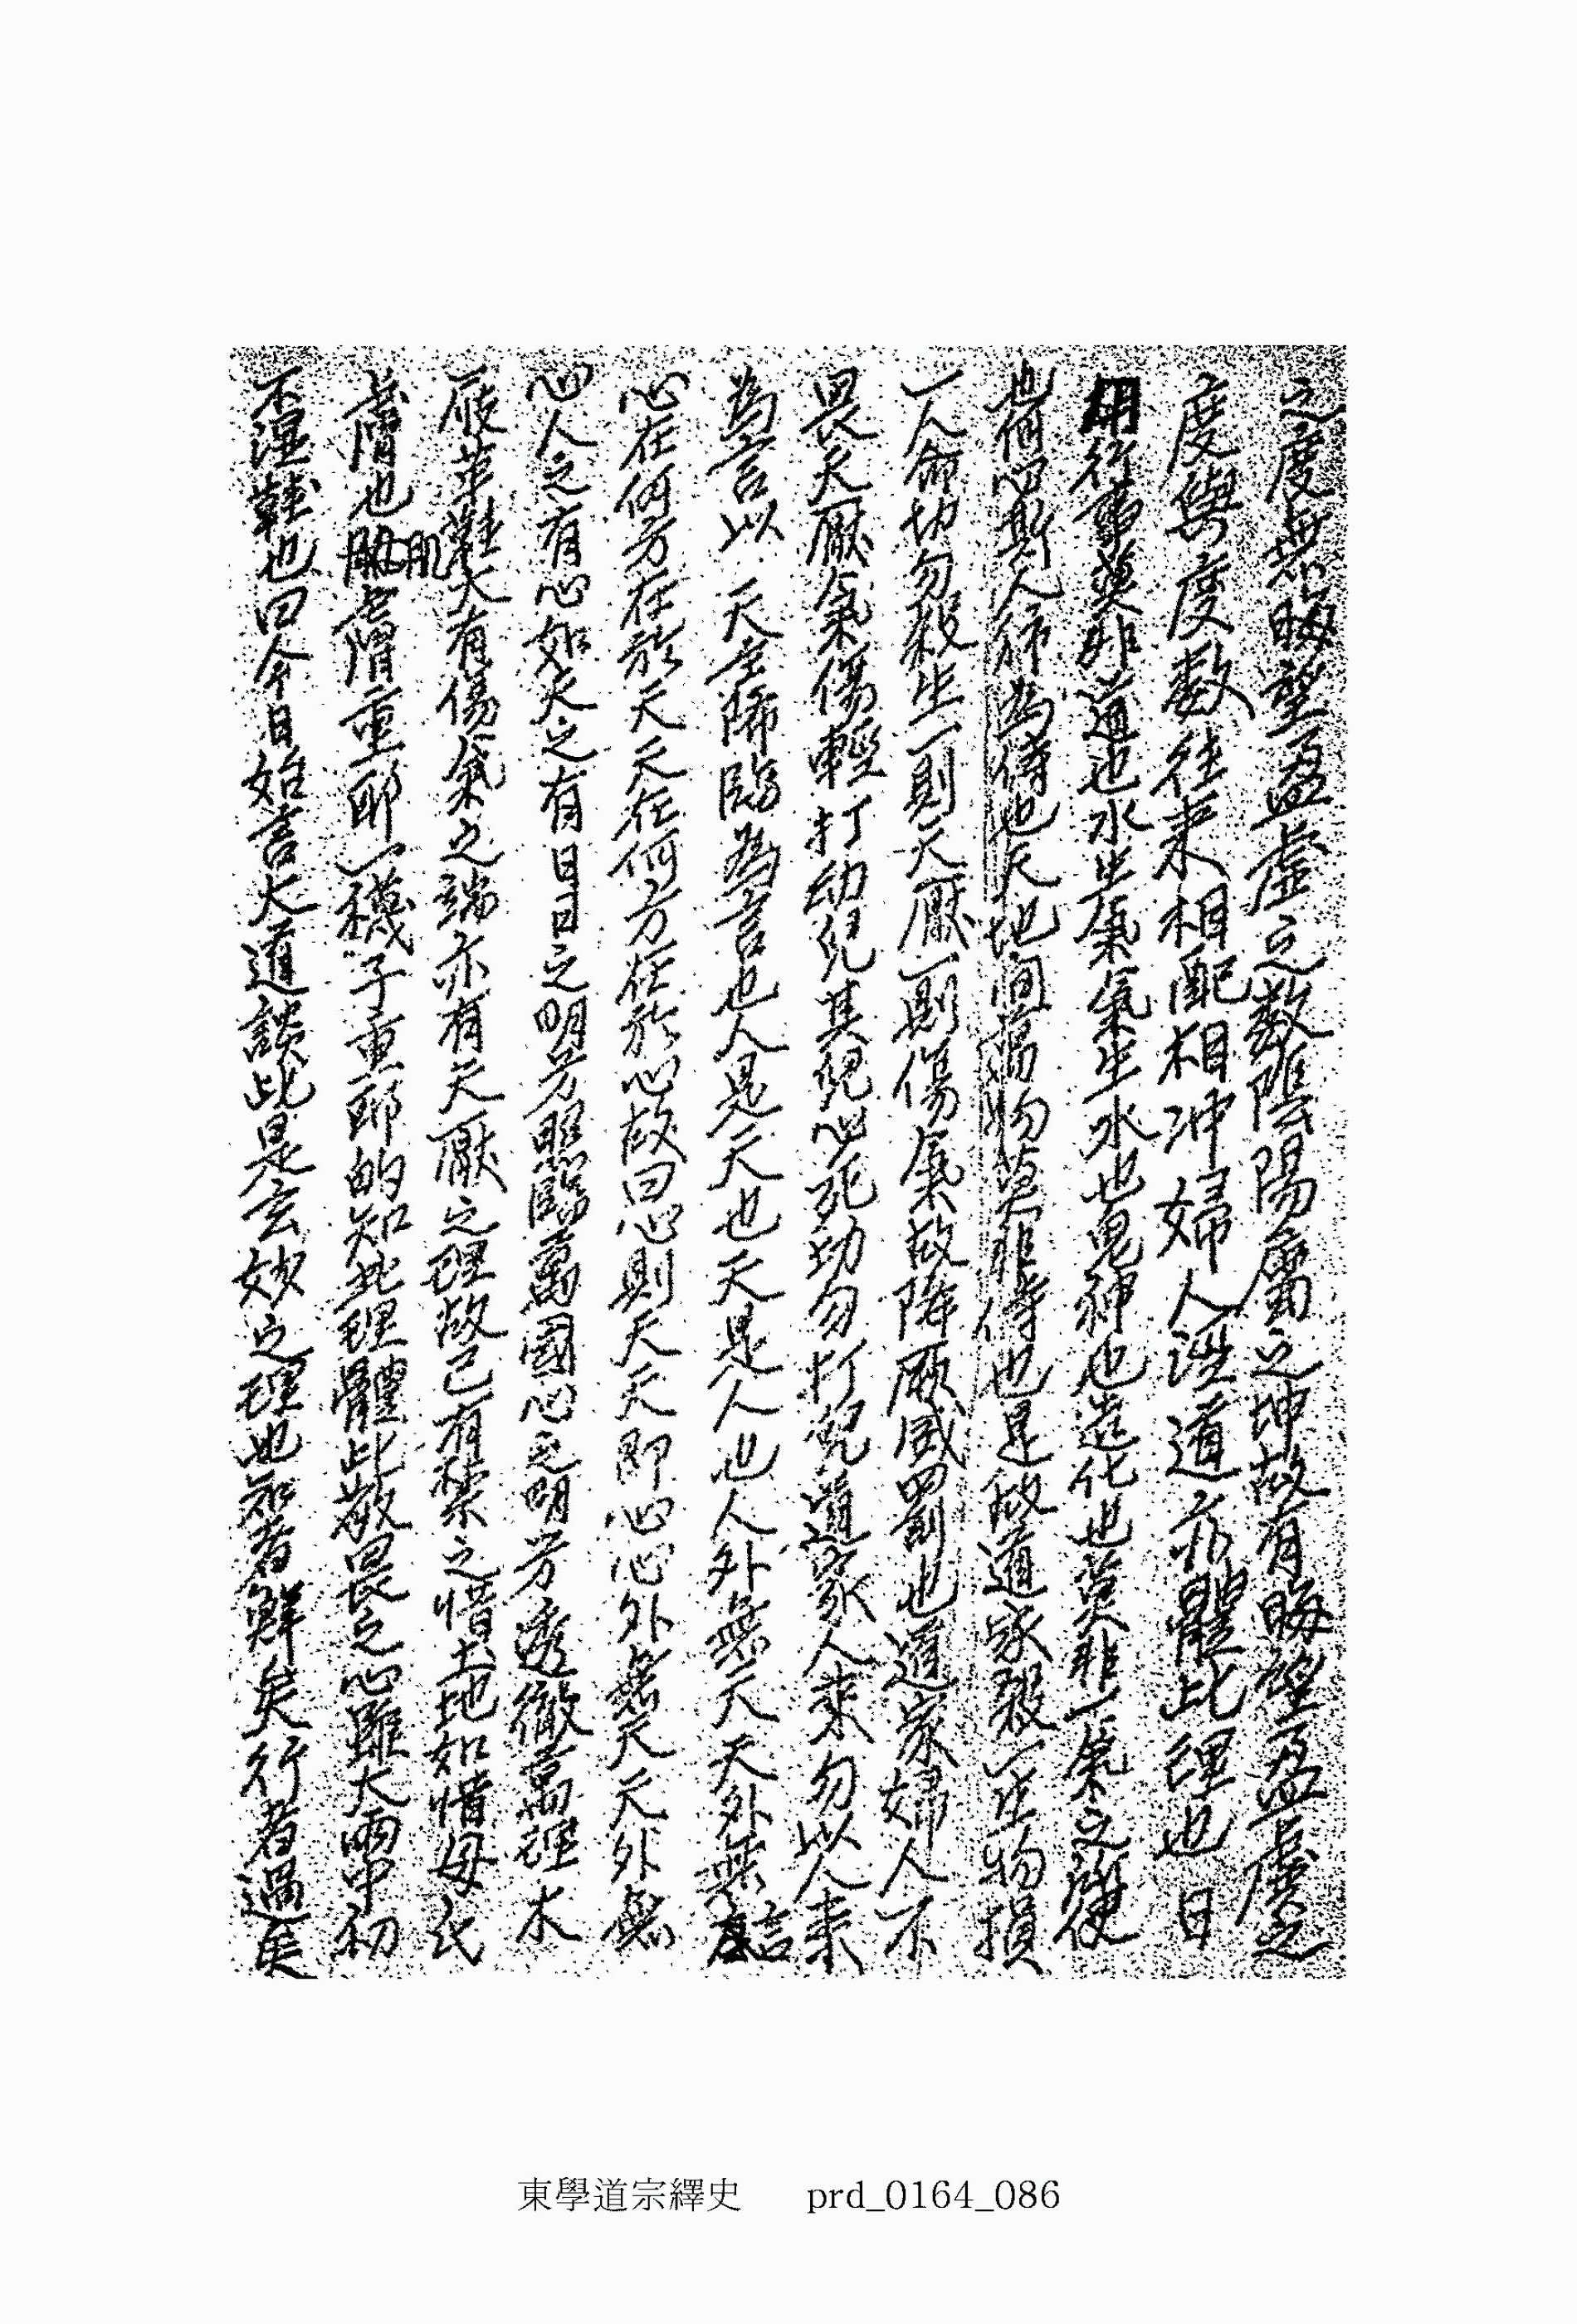 之度無晦望盈虛之數陰陽屬之坤故有晦望盈虛之
度與度數往來相配相冲婦人從道亦體此理也日
用行事莫非道也水生氣氣生水也鬼神也造化也莫非一氣之所使
也何必斯人獨爲侍也天地間萬物莫非侍也是故道家殺一生物損
一人命切勿殺生一則天厭一則傷氣故降厥威罰也道家婦人不
畏天厭氣傷輕打幼兒其兒必死切勿打兒道家人來勿以人來
爲言以 天主降臨爲言也人是天也天是人也人外無天天外無言
心在何方在於天天在何方在於心故曰心則天天即心心外無天天外無
心人之有心如天之有日日之明兮照臨萬國心之明兮透徹萬理木
屐革鞋大有傷氣之端亦有天厭之理故已有禁之惜土地如惜母氏
膚也肌肌膚重耶一襪子重耶的知此理體此敬畏之心雖大雨中初
不湿鞋也曰今日始言大道談此是玄妙之理也知者鮮矣行者過矣
東學道宗繹史 prd_0164_086